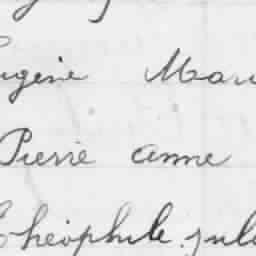 Eugène Mari
Pierre anne
Théophile jule